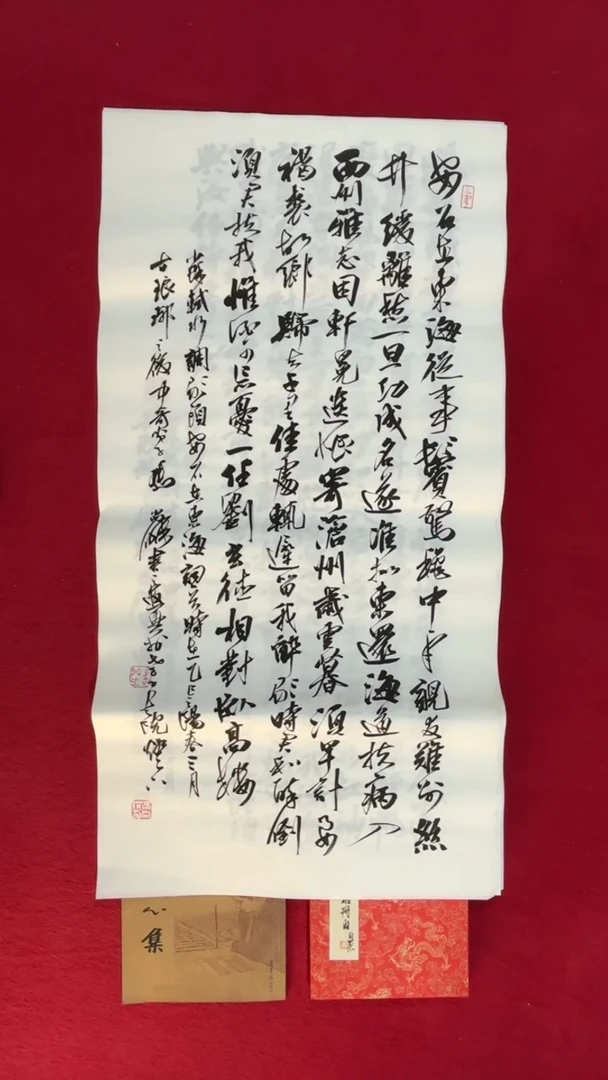 安石在東海從事鬢驚秋中年親友難別絲
竹緩離愁一旦功成名遂准拟東還海道扶病入
西州雅志困軒冕遺恨寄滄州歲雲暮須早計要
褐裘故鄉歸去千里佳處輒遲留我醉歌時君和醉倒
須君扶我惟酒可忘憂一任劉玄德相對臥高樓
蘇軾水調歌頭安石在東海詞時在乙巳陽春三月
古琅琊之後中書之
心集